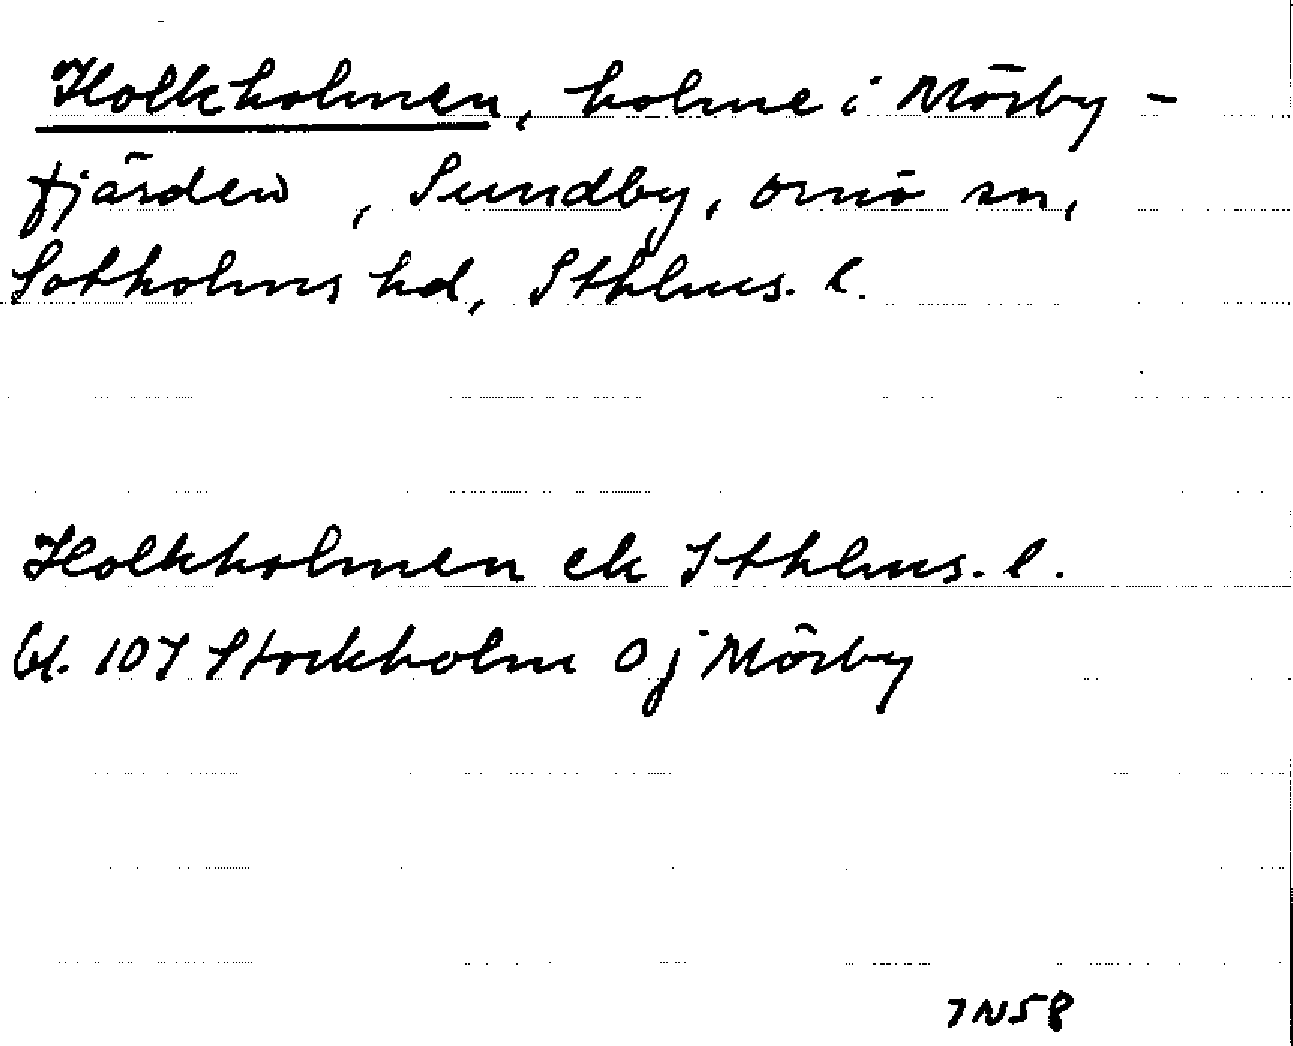 Holkholmen, holme i Mörby-
fjärden, Sundby, Ornö sn,
Sotholms hd, Sthlms. l.
Holkholmen ek Sthlms. l.
bl. 107 Stockholm Oj Mörby
7N58